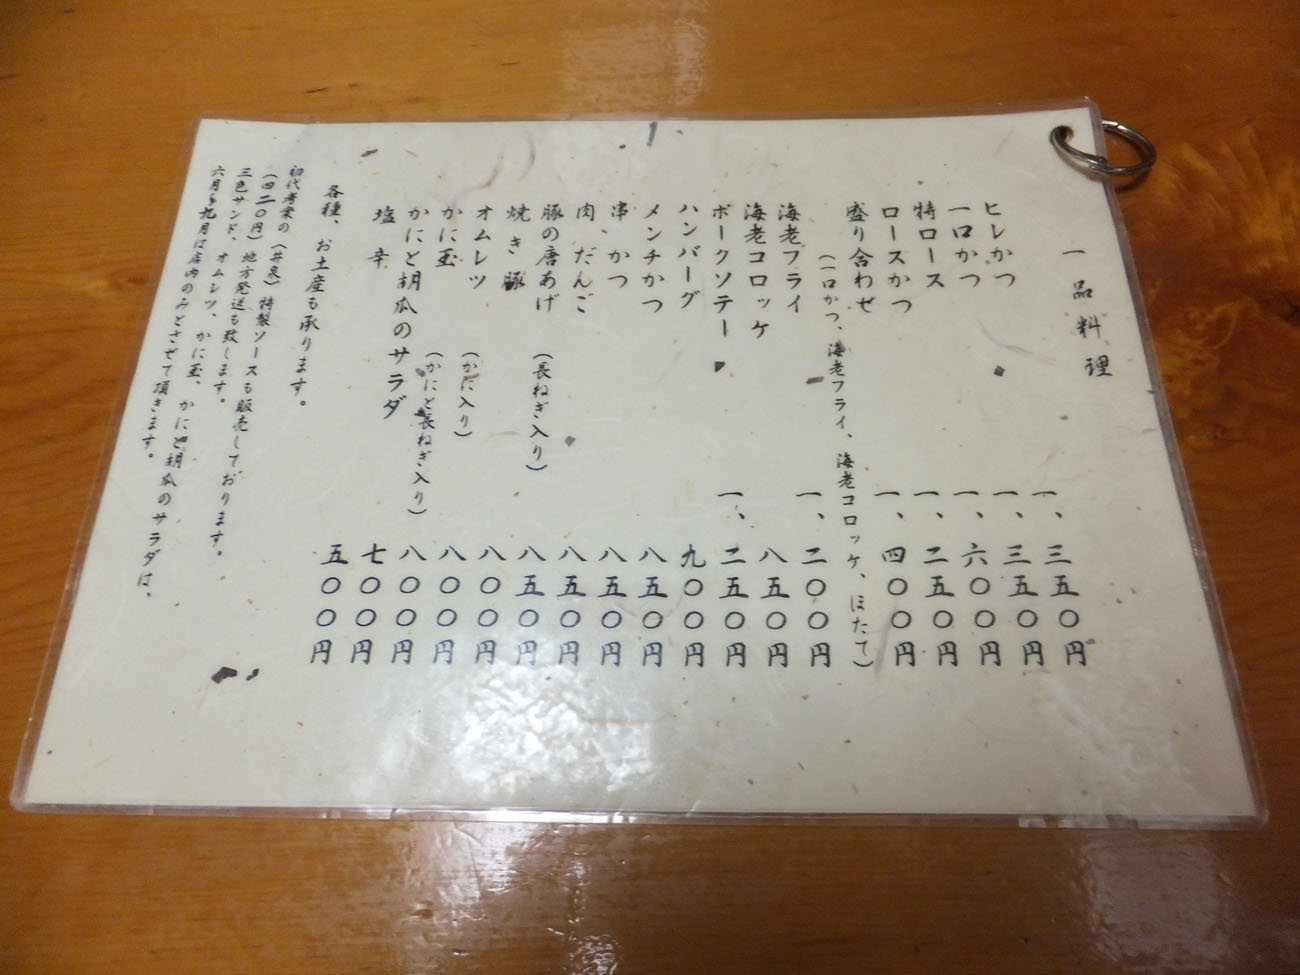 一品料理
ヒレかつ 一、三五〇円
一口かつ 一、三五〇円
特ロース 一、六〇〇円
ロースかつ 一、二五〇円
盛り合わせ 一、四〇〇円
(一口かつ、海老フライ、海老コロッケ、ほたて)
海老フライ 一、二〇〇円
海老コロッケ 八五〇円
ポークソテー 一、二五〇円
ハンバーグ 九〇〇円
メンチかつ 八五〇円
串かつ 八五〇円
肉だんご 八五〇円
豚の唐あげ (長ねぎ入り) 八五〇円
焼き豚 八〇〇円
オムレツ (かに入り) 八〇〇円
かに玉 (かにと長ねぎ入り) 八〇〇円
かにと胡瓜のサラダ 七〇〇円
塩辛 五〇〇円
各種、お土産も承ります。
初代考案の〈井泉〉特製ソースも販売しております。
(四二〇円)地方発送も致します。
三色サンド、オムレツ、かに玉、かにと胡瓜のサラダは、
六月〜九月は店内のみとさせて頂きます。